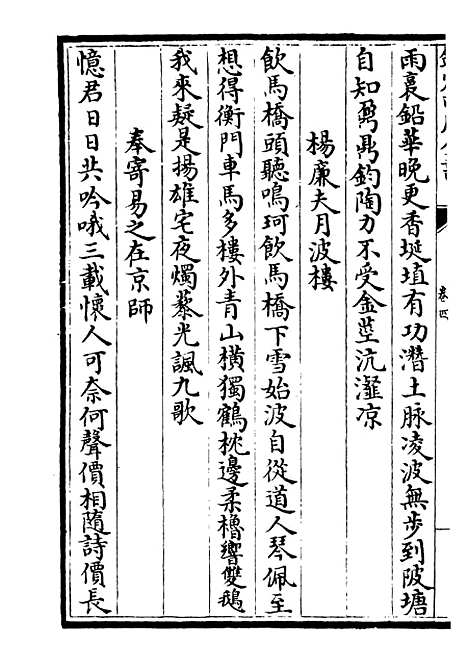 雨裛鉛華晚更香埏埴有功潛土脉凌波無步到陂塘
自知鼐鼎鈞陶力不受金莖沆瀣凉
楊廉夫月波樓
飲馬橋頭聽鳴珂飲馬橋下雪始波自從道人琴佩至
想得衡門車馬多樓外青山橫獨鶴枕邊柔櫓響雙鵝
我來疑是揚雄宅夜燭藜光諷九歌
奉寄易之在京師
憶君日日共吟哦三載懷人可奈何聲價相隨詩價長
卷四